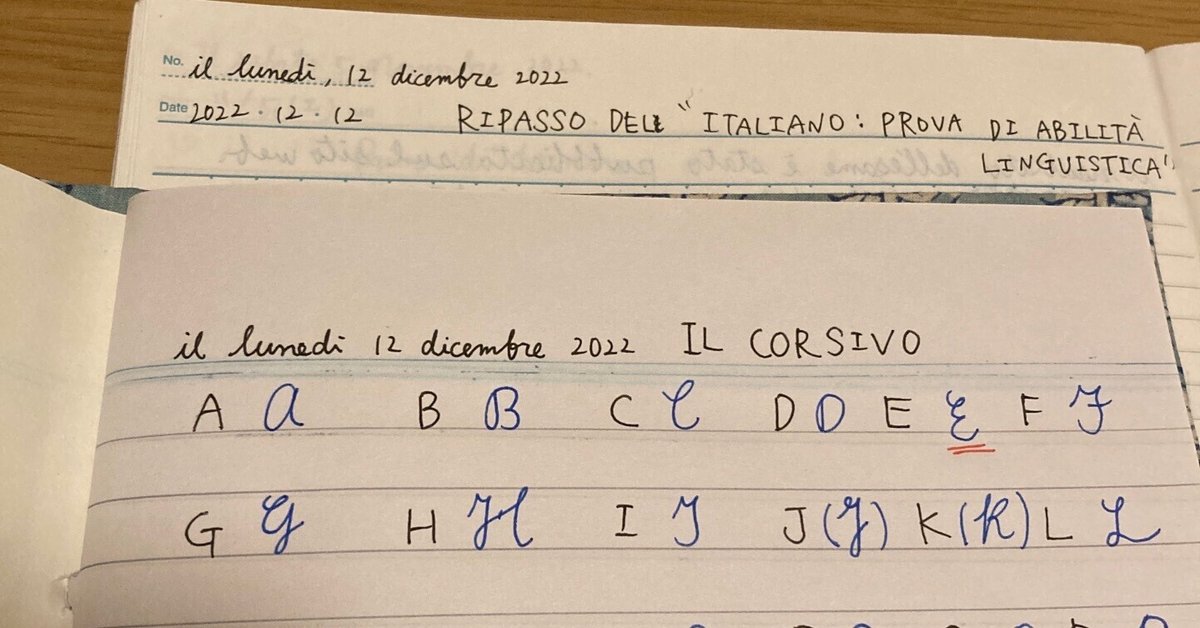 No. il lunedì, 12 dicembre 2022
Date 2022・12・12 RIPASSO DELL "ITALIANO: PROVA DI ABILITÀ
LINGUISTICA"
il lunedì 12 dicembre 2022 IL CORSIVO
A A B B C C D D E E F F
G G H H I I J (J) K (K) L L